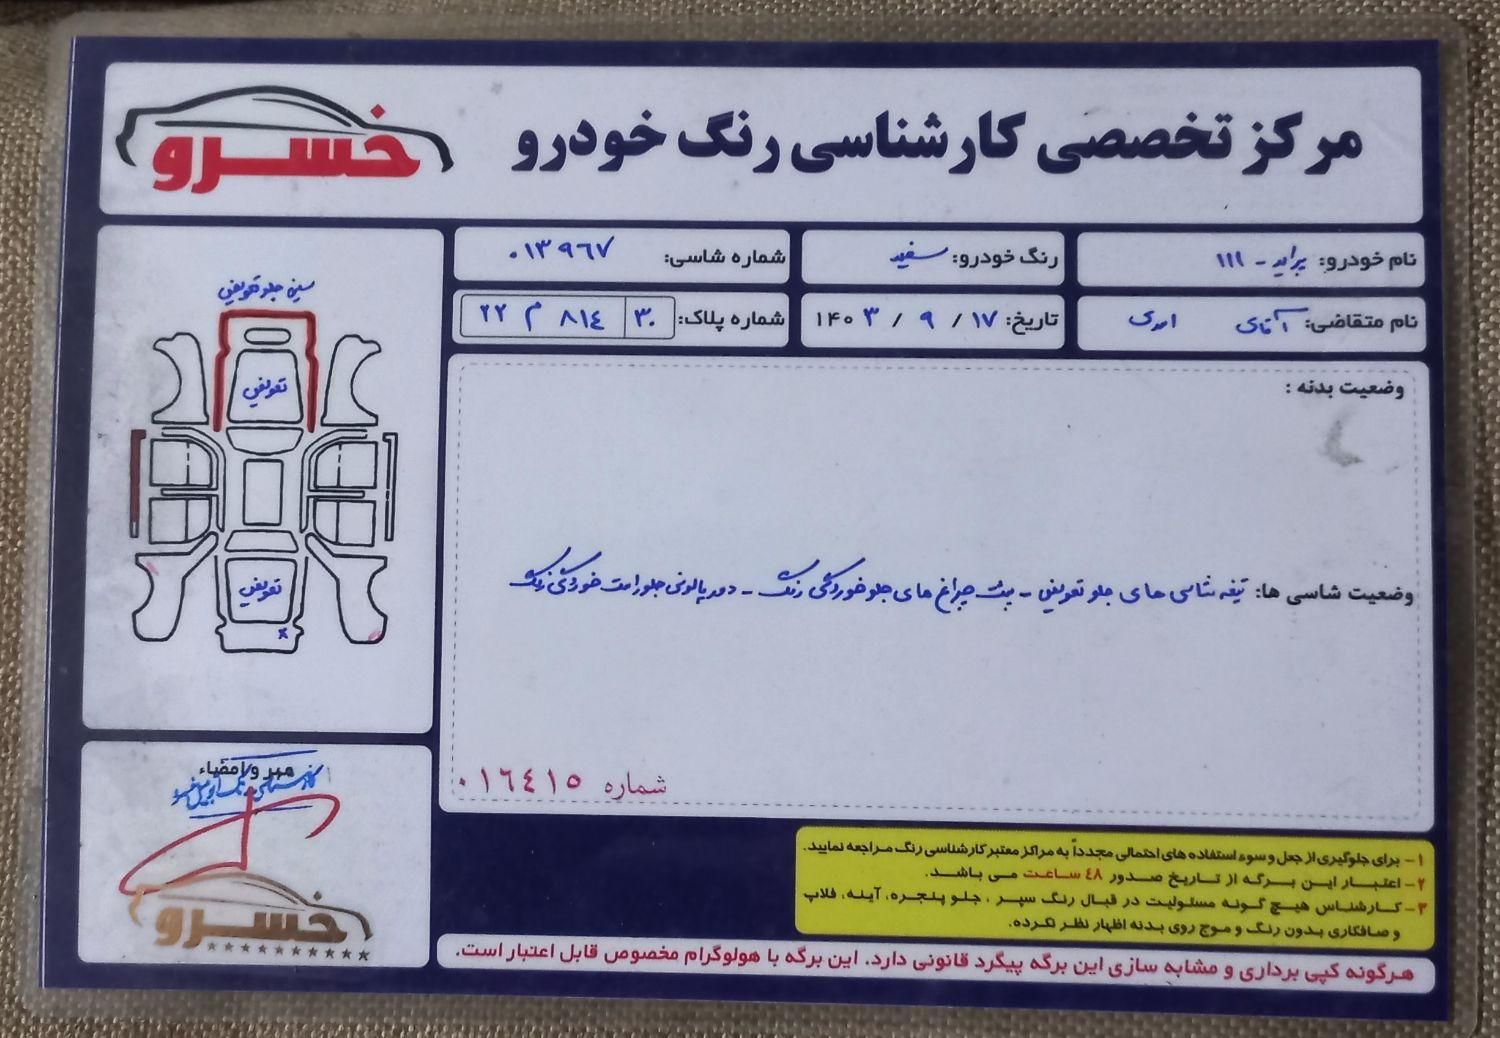 مرکز تخصصی کارشناسی رنگ خودرو
خسرو
نام خودرو: پراید - ۱۱۱
رنگ خودرو: سفید
شماره شاسی: ۰۱۳۹۶۷
نام متقاضی: آقای
تاریخ: ۱۷ / ۹ / ۱۴۰۳
شماره پلاک: ۳۰ ۸۱۴ م ۲۲
سینی جلو تعویض
تعویض
تعویض
وضعیت بدنه :
وضعیت شاسی ها: تیغه شاسی های جلو تعویض - پشت چراغ های جلو خوردگی رنگ - دور پالونی جلو راست خوردگی رنگ
شماره ۰۱۶۴۱۵
مهر و امضاء
خسرو
۱- برای جلوگیری از جعل و سوء استفاده های احتمالی مجدداً به مراکز معتبر کارشناسی رنگ مراجعه نمایید.
۲- اعتبار این برگه از تاریخ صدور ۴۸ ساعت می باشد.
۳- کارشناس هیچ گونه مسئولیت در قبال رنگ سپر ، جلو پنجره، آینه، فلاپ
و صافکاری بدون رنگ و موج روی بدنه اظهار نظر نکرده.
هرگونه کپی برداری و مشابه سازی این برگه پیگرد قانونی دارد. این برگه با هولوگرام مخصوص قابل اعتبار است.